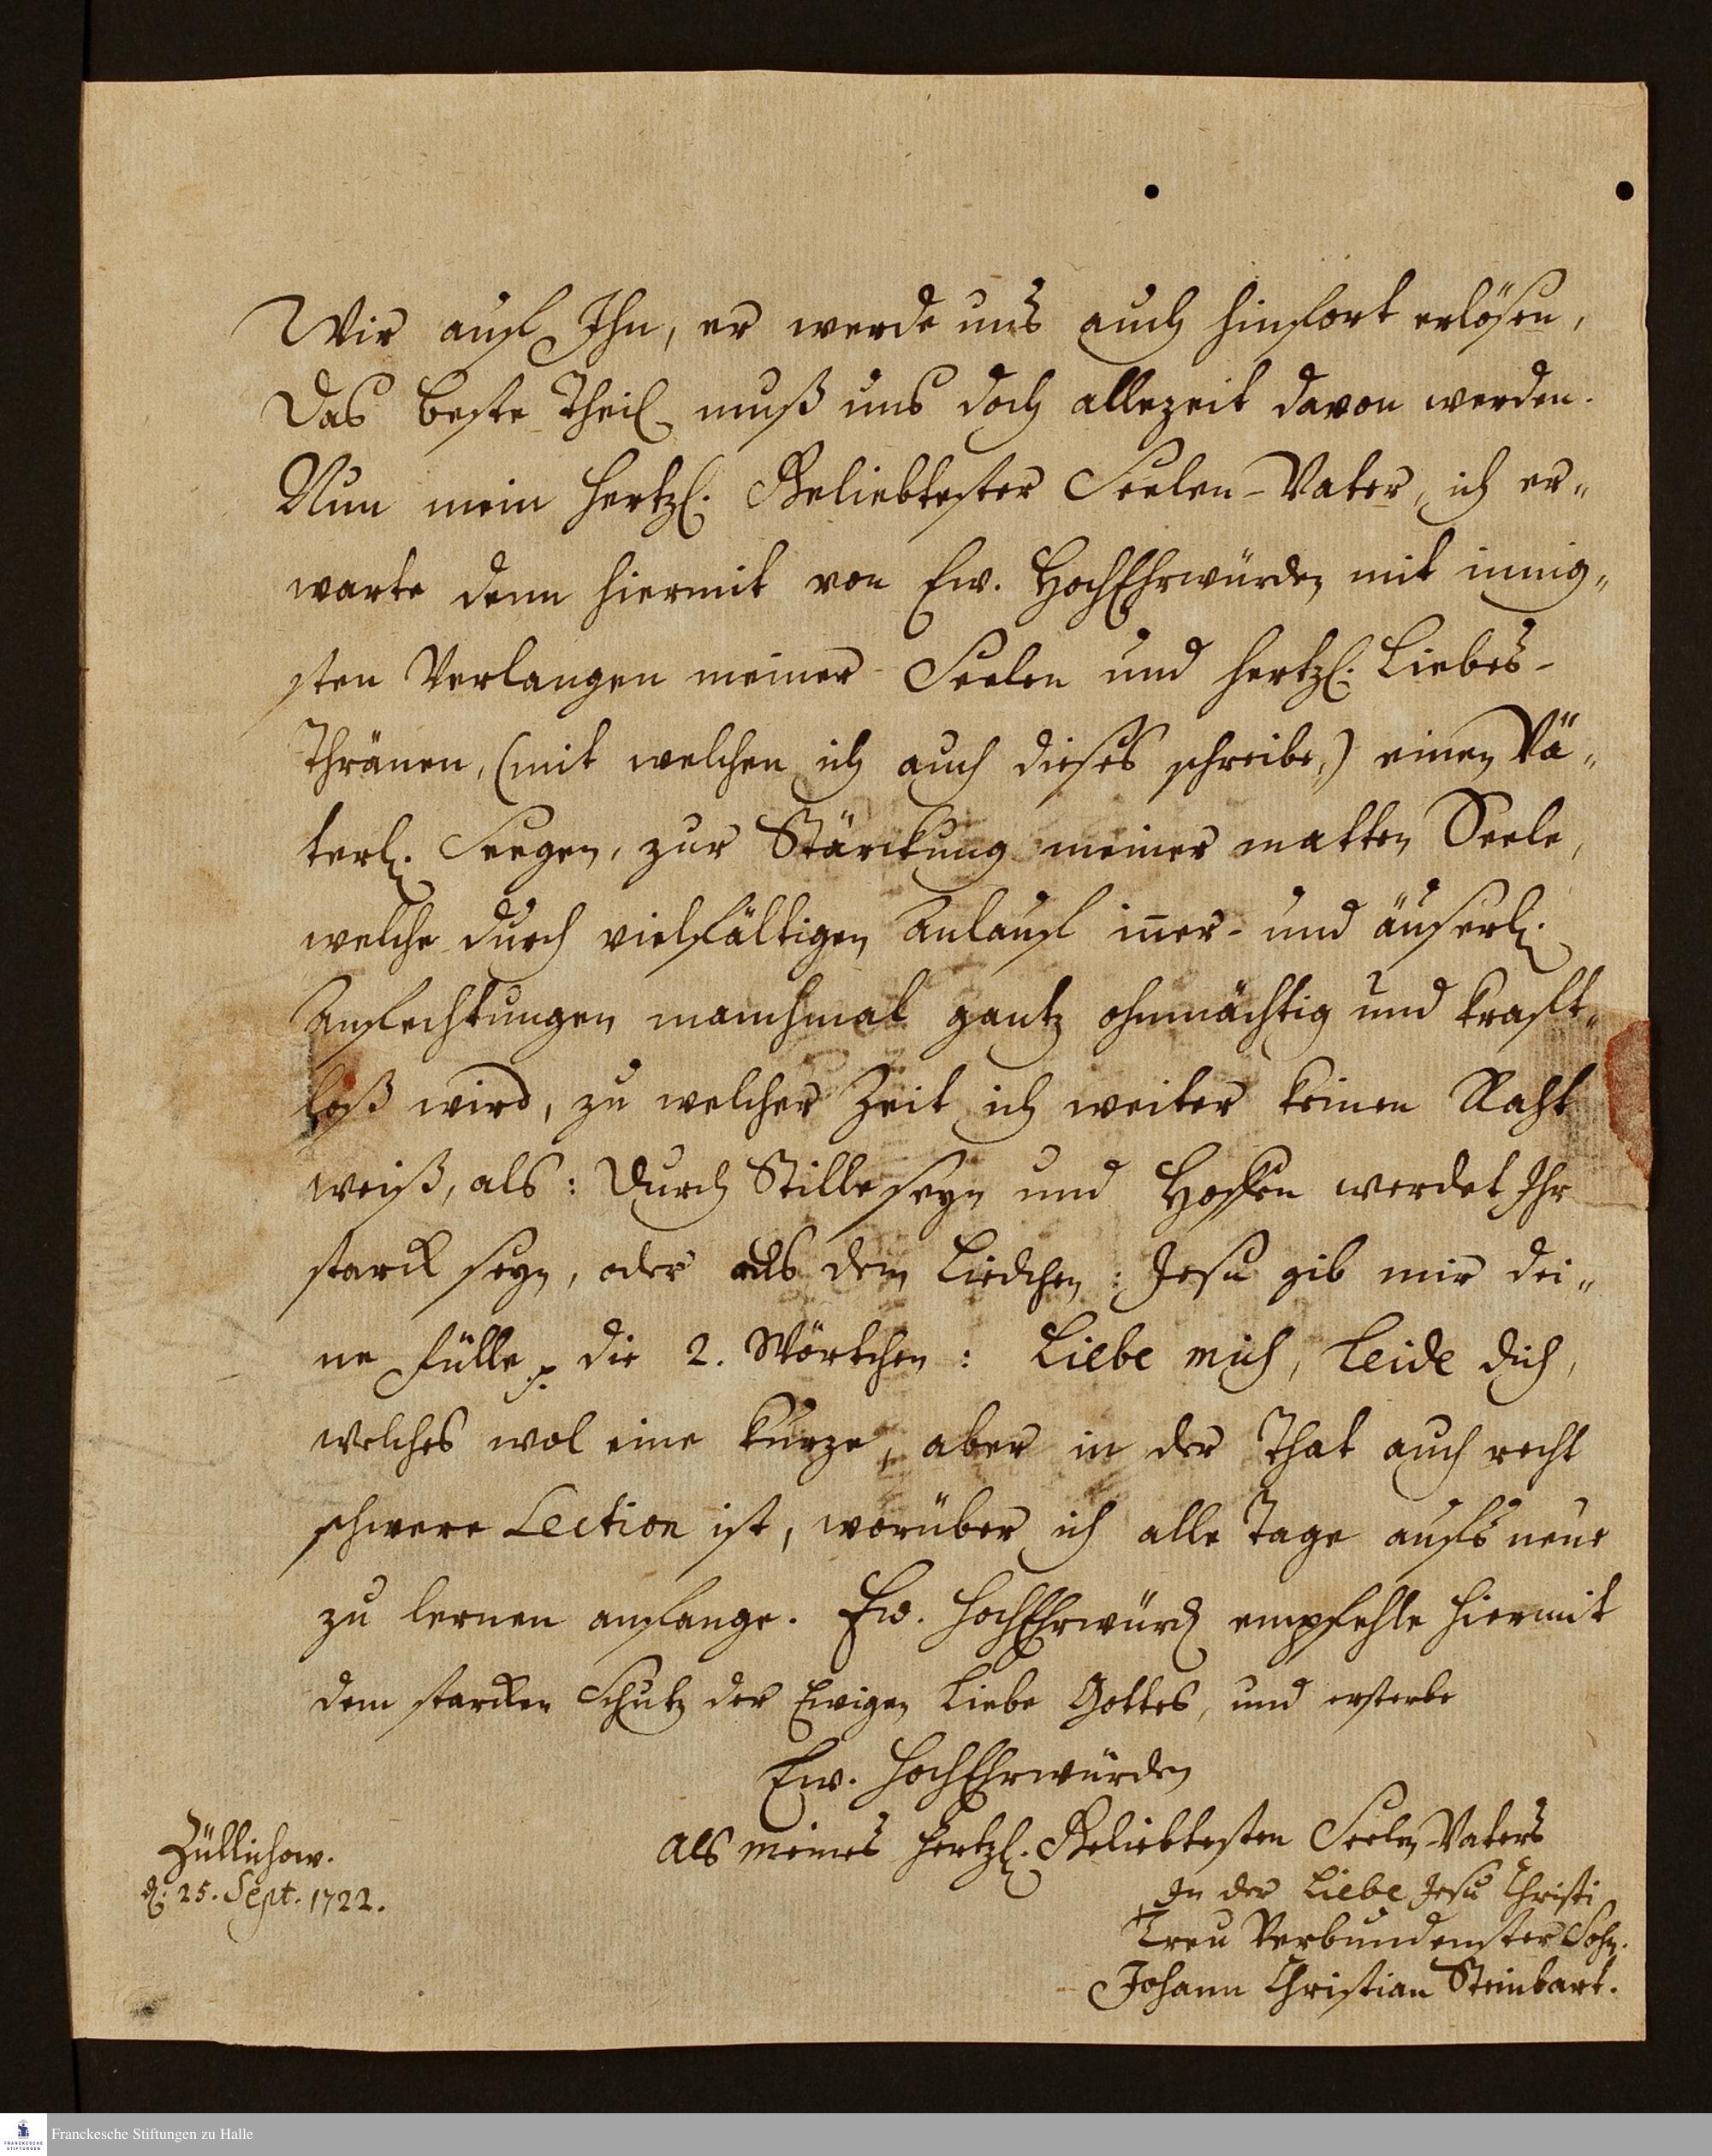 Wir auf Ihn, er werde uns auch hinfort erlösen,
Das beste Theil muß uns doch allezeit davon werden.
Nun mein hertzl. Geliebtester Seelen-Vater, ich er-
warte denn hiermit von Ew. HochEhrwürden mit innig-
sten Verlangen meiner Seelen und hertzl. Liebes-
Thränen, (mit welchen ich auch dieses schreibe,) einen Vä-
terl. Seegen, zur Stärckung meiner matten Seele,
welche durch vielfältigen Anlauf iñer- und äuserl.
Anfechtungen manchmal gantz ohnmächtig und kraft-
loß wird, zu welcher Zeit ich weiter keinen Raht
weiß, als: Durch Stille seyn und Hoffen werdet Ihr
starck seyn, oder aus dem Liedchen: Jesu gib mir dei-
ne Fülle p. die 2. Wörtchen: Liebe mich, Leide dich,
welches wol eine kurze, aber in der That auch recht
schwere Lection ist, worüber ich alle Tage aufs neue
zu lernen anfange. Ew. HochEhrwürd empfehle hiermit
dem starcken Schutz der Ewigen Liebe Gottes, und ersterbe
Ew. HochEhrwürden
als meines hertzl. Geliebtesten Seelen-Vaters
Züllichow.
d. 25. Sept. 1722.
In der Liebe Jesu Christi
Treu Verbundenster Sohn.
Johann Christian Steinbart.
FRANCKESCHE STIFTUNGEN
Franckesche Stiftungen zu Halle